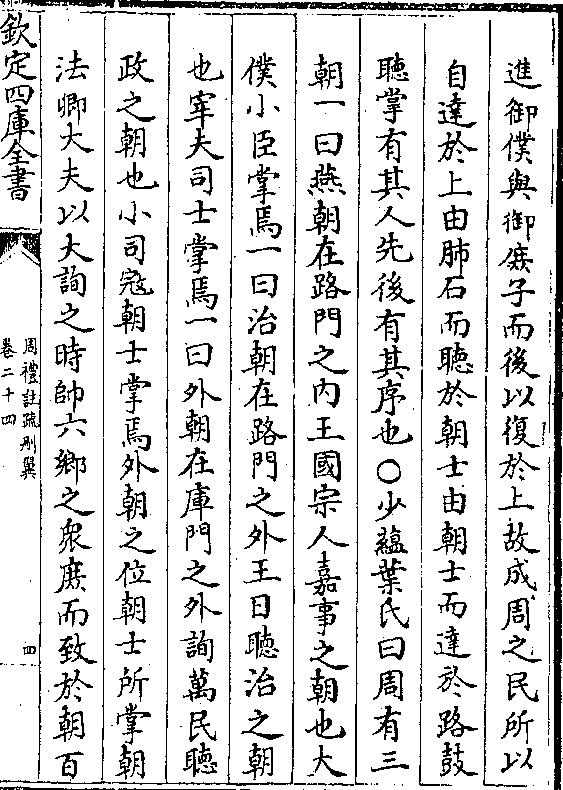 進御僕與御庶子而後以復於上故成周之民所以
自達於上由肺石而聽於朝士由朝士而達於路鼓
聽掌有其人先後有其序也○少蘊葉氏曰周有三
朝一曰燕朝在路門之内王國宗人嘉事之朝也大
僕小臣掌焉一曰治朝在路門之外王日聽治之朝
也宰夫司士掌焉一曰外朝在庫門之外詢萬民聽
政之朝也小司寇朝士掌焉外朝之位朝士所掌朝
法卿大夫以大詢之時帥六鄉之衆庶而致於朝百
欽定四庫全書
周禮註疏刪翼
卷二十四
四